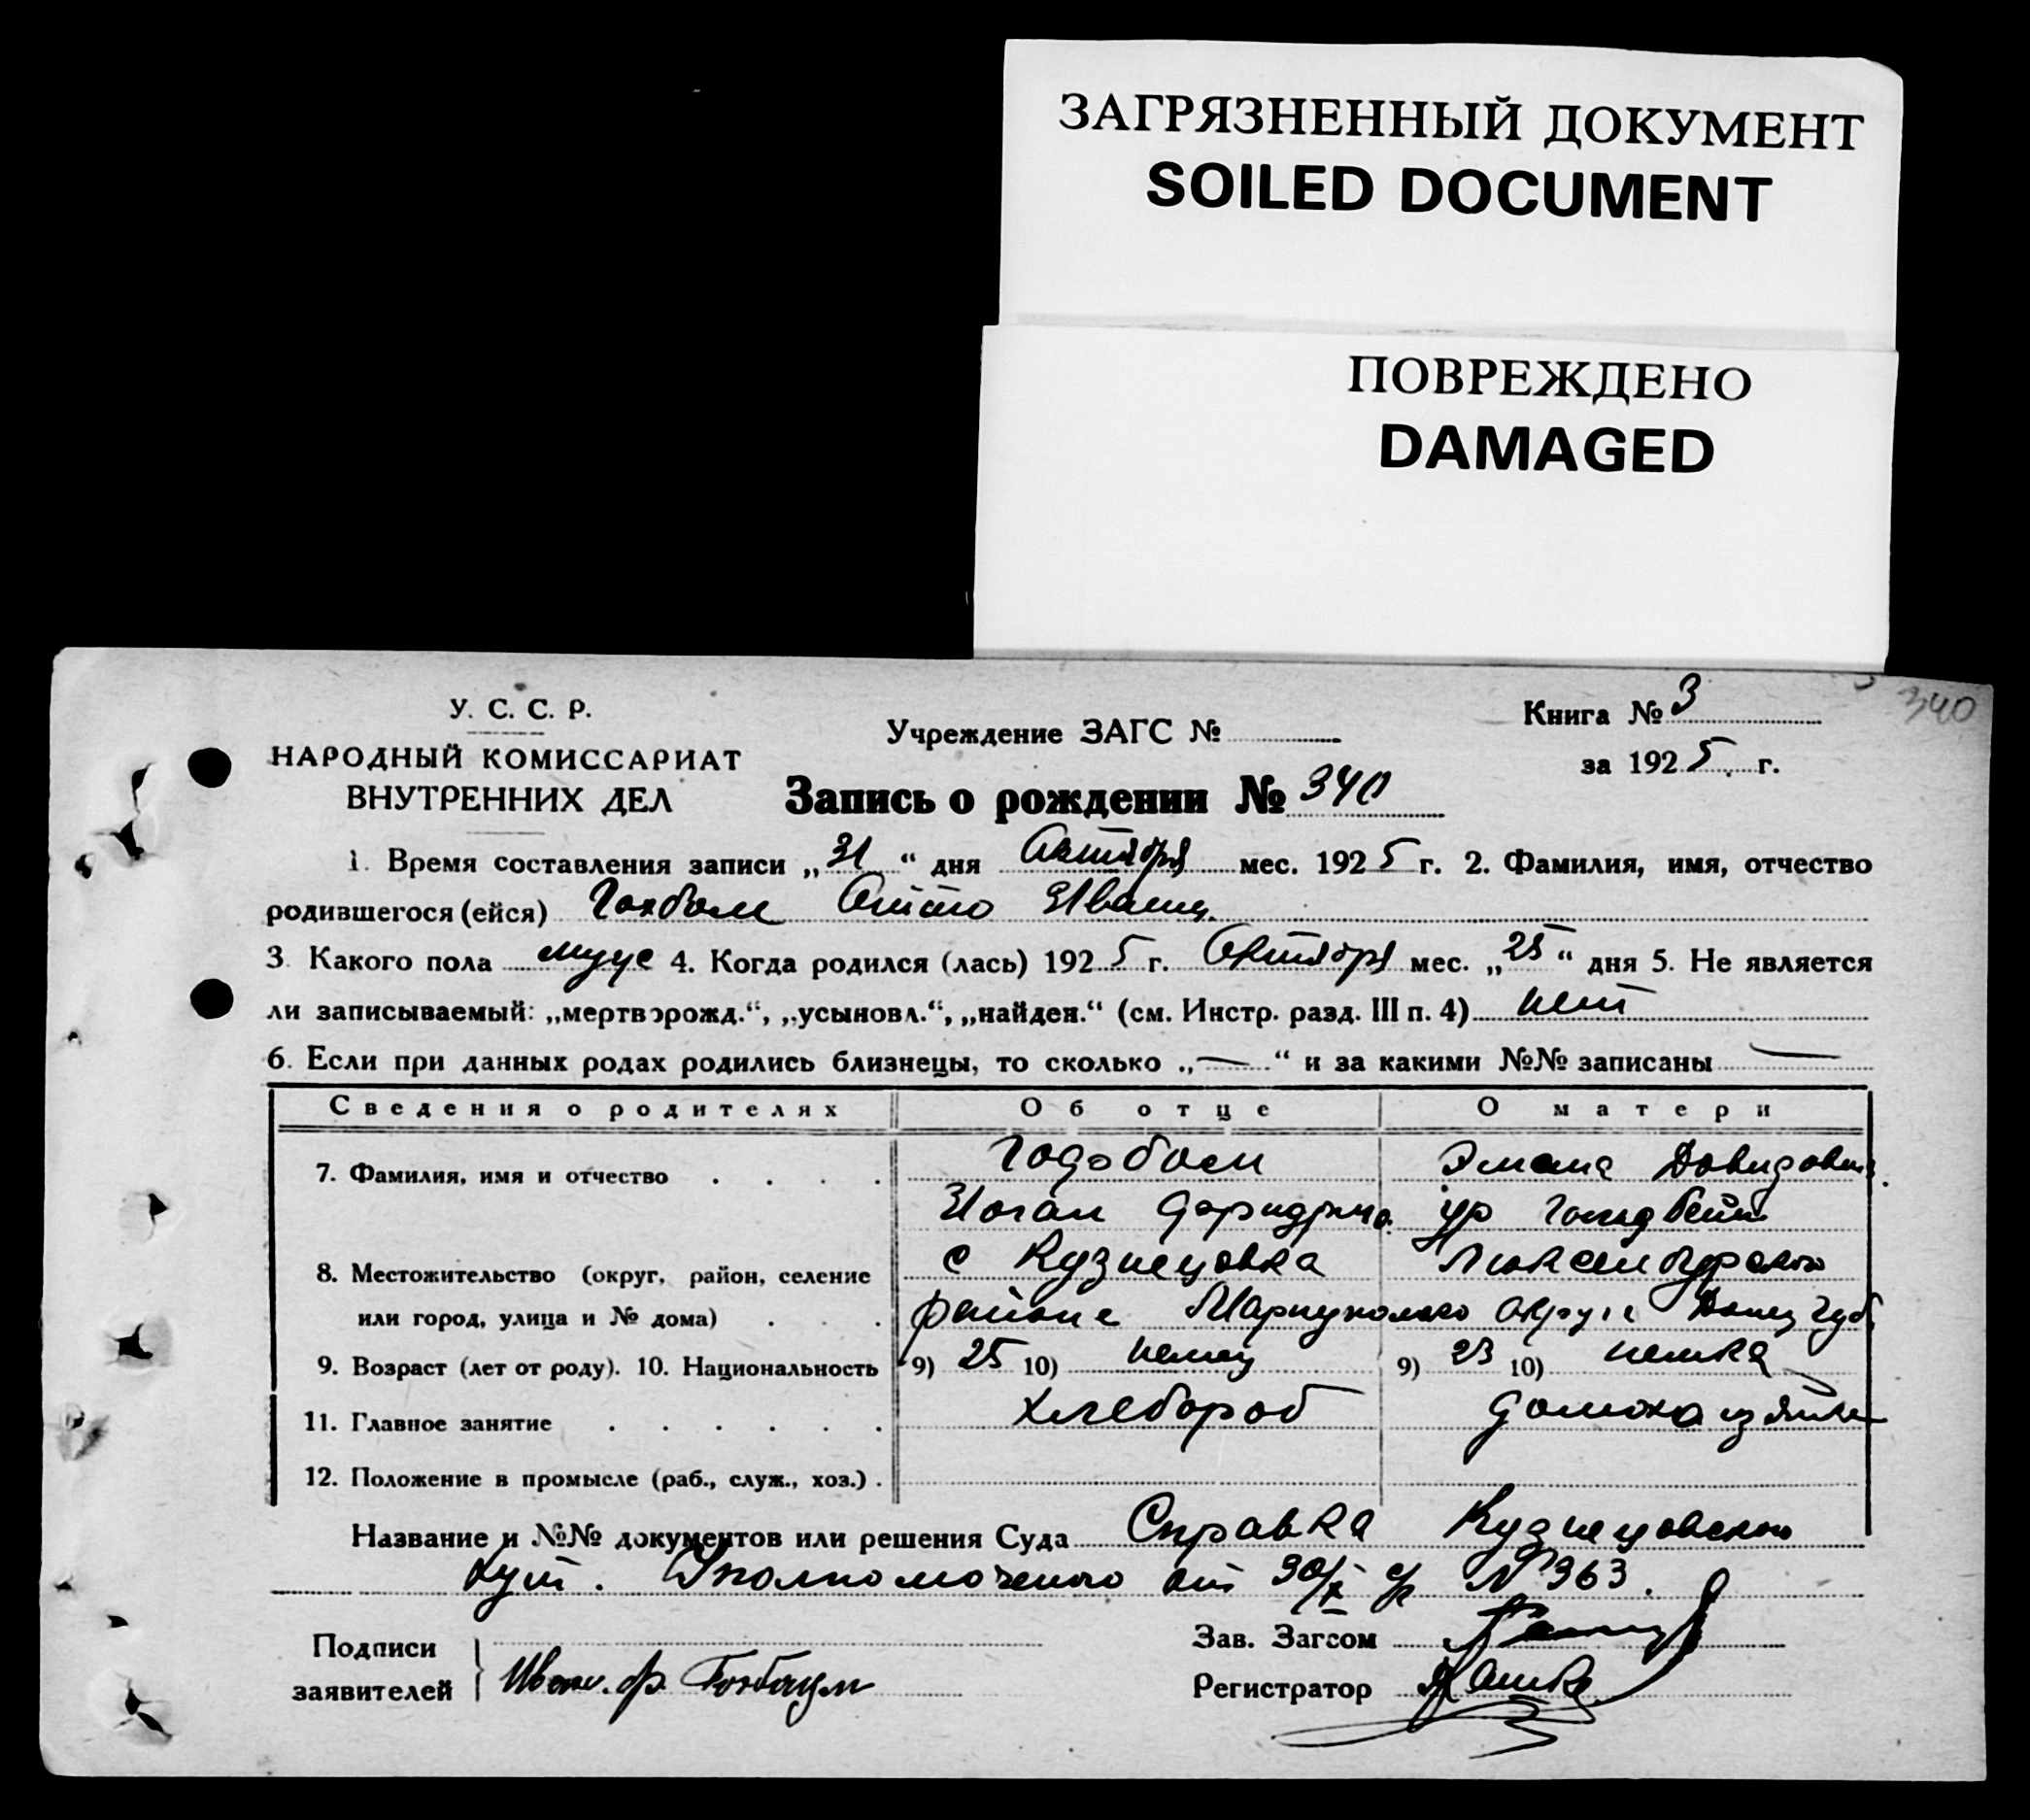 ЗАГРЯЗНЕННЫЙ ДОКУМЕНТ
SOILED DOCUMENT
ПОВРЕЖДЕНО
DAMAGED
340
У. С. С. Р.
НАРОДНЫЙ КОМИССАРИАТ
ВНУТРЕННИХ ДЕЛ
Учреждение ЗАГС №
Книга № 3
за 1925 г.
Запись о рождении № 340
1. Время составления записи „31“ дня Октября мес. 1925 г. 2. Фамилия, имя, отчество
родившегося (ейся) Гохбом Отто Иванц.
3. Какого пола муже 4. Когда родился (лась) 1925 г. Октября мес. „25“ дня 5. Не является
ли записываемый: „мертворожд.“, „усыновл.“, „найден.“ (см. Инстр. разд. III п. 4) нет
6. Если при данных родах родились близнецы, то сколько „—“ и за какими №№ записаны —
Сведения о родителях Об отце О матери
7. Фамилия, имя и отчество
Иоган
8. Местожительство (округ, район, селение с Кузнецовка Люксембургского
или город, улица и № дома) района Мариупольско округа Донец губ.
9. Возраст (лет от роду). 10. Национальность 9) 25 10) немец 9) 23 10) немка
11. Главное занятие хлебороб домохозяйка
12. Положение в промысле (раб., служ., хоз.)
Название и №№ документов или решения Суда Справка Кузнецовского
хут. Уполномоченого от 30/X с/г №363.
Подписи
заявителей Иван. Ф. Гохбаум
Зав. Загсом
Регистратор